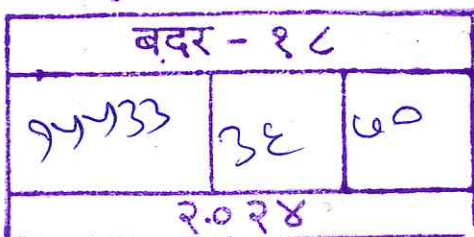 बदर - १८
१५५३३ ३६ ७०
२०२४